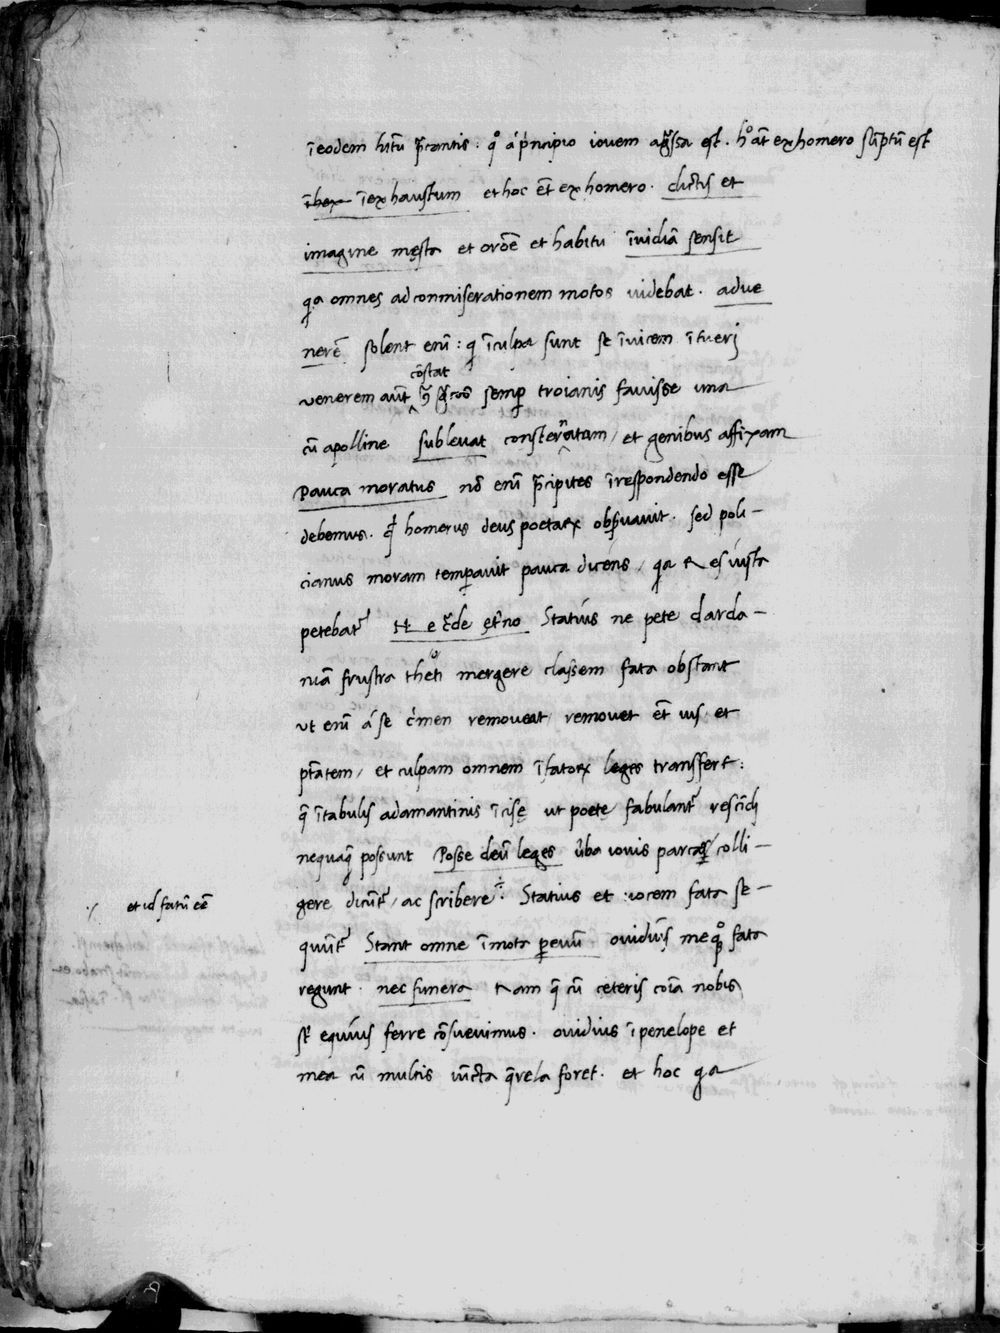 ī eodem hītū p̄cantis : qͦ a pͥncipio iovem agr̄ssa est . hͦ aūt ex homero sūptū est
ī hex īexhaustum et hoc ēt ex homero . dictis et
imagine męsta et orōe et habitu īvidiā sensit
qa omnes ad conmiserationem motos videbat . adve
nerē solent enī : qͥ ī culpa sunt se īvicem ītueri
cōstat
venerem aūt semp troianis favisse una
cū apolline sublevat consternatam / et genibus affixam
Pauca moratus nō enī p̄cipites ī respondendo esse
debemus . qd homerus deus poetaꝝ obs̄vavit . sed poli-
cianus moram temperavit pauca dicens / qa res iusta
petebat᷑ Statius ne pete darda-
niā frustra theti mergere classem fata obstant
ut enī a se cͥmen removeat / removet ēt ius et
pt̄atem / et culpam omnem ī fatoꝝ leges transffert :
q̄ ī tabulis adamantinis īcisę ut poetę fabulant᷑ rescīdi
nequaq̄ possunt Posse deū leges v̄ba iovis parcaꝝ / colli-
gere dicūt᷑ / ac scribere ÷ Statius et vocem fata se-
./ et id fatū eē
quūt᷑ Stant omne īmota p evū ovidius meqͦq fata
regunt . nec funera nam q̄ cū ceteris cōia nobis
st̄ equius ferre cōsuevimus . ovidius ī penelope et
mea cū multis iūcta q̄rela foret . et hoc qa